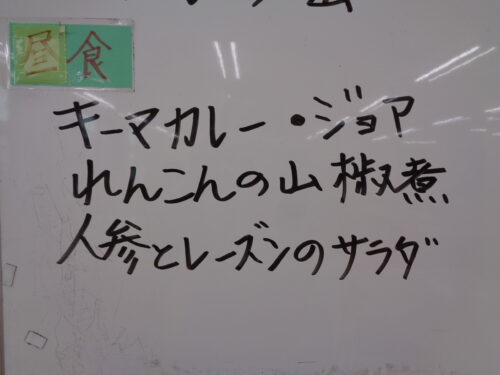 昼食
キーマカレー・ジョア
れんこんの山椒煮
人参とレーズンのサラダ